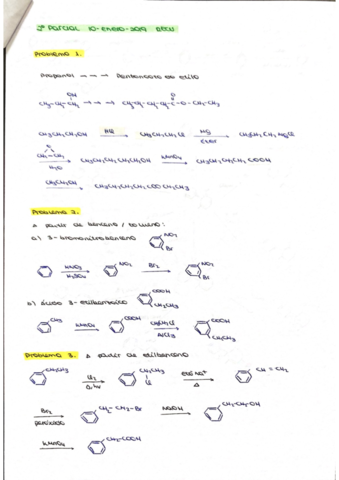 2º PARCIAL 10-ENERO-2019
Problema 1.
Propanol ---→ Pentanoato de etilo
OH O
CH3-CH2-CH2 →→→ CH3-CH2-CH2-CH2-C-O-CH2-CH3
CH3CH2CH2OH HCl CH3CH2CH2Cl Mg Eter CH3CH2CH2MgCl
O CH2-CH2 H2O CH3CH2CH2CH2CH2OH KMnO4 CH3CH2CH2CH2COOH
CH3CH2OH CH3CH2CH2CH2COOCH2CH3
Problema 2.
A partir de benceno / tolueno:
a) 3-bromonitrobenceno NO2 Br
HNO3 H2SO4 NO2 Br2 NO2 Br
b) ácido 3-etilbenzoico COOH CH2CH3
CH3 KMnO4 COOH CH3CH2Cl AlCl3 COOH CH2CH3
Problema 3. A partir de etilbenceno
CH2CH3 Cl2 CHCH3 Cl EtO-Na+ Δ CH=CH2
Br2 peróxido CH2-CH2-Br NaOH CH2-CH2-OH
KMnO4 CH2-COOH